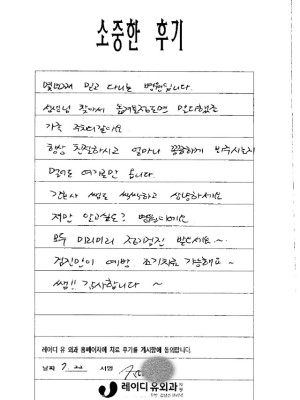 소중한 후기
몇년째 믿고 다니는 병원입니다.
선생님 찾아서
가족 주치의같아요
항상 친절하시고 얼마나 꼼꼼하게 봐주시는지
멀어도 여기로만 옵니다.
간호사 쌤도 싹싹하고 상냥하세요
저만 안고쳐도? 병원이에요
모두 미리미리 정기검진 받으세요~
검진만이 예방 조기치료 가능해요~
쌤!! 감사합니다 ~
레이디 유 외과 홈페이지에 치료 후기를 게시함에 동의합니다.
날짜 7. 서명
레이디유외과